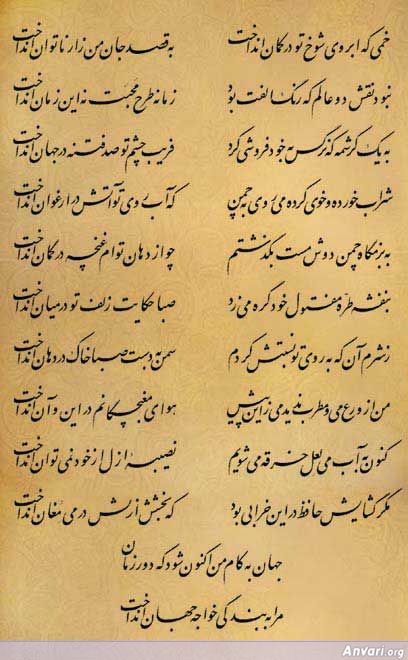 خمی که ابروی شوخ تو در کمان انداخت به قصد جان من زار ناتوان انداخت
نبود نقش دو عالم که رنگ الفت بود زمانه طرح محبت نه این زمان انداخت
به یک کرشمه که نرگس به خودفروشی کرد فریب چشم تو صد فتنه در جهان انداخت
شراب خورده و خوی کرده می‌روی به چمن که آب روی تو آتش در ارغوان انداخت
به بزمگاه چمن دوش مست بگذشتم چو از دهان توام غنچه در گمان انداخت
بنفشه طره مفتول خود گره می‌زد صبا حکایت زلف تو در میان انداخت
ز شرم آن که به روی تو نسبتش کردم سمن به دست صبا خاک در دهان انداخت
من از ورع می و مطرب ندیدمی زین پیش هوای مغبچگانم در این و آن انداخت
کنون به آب می لعل خرقه می‌شویم نصیبه ازل از خود نمی‌توان انداخت
مگر گشایش حافظ در این خرابی بود که بخشش ازلش در می مغان انداخت
جهان به کام من اکنون شود که دور زمان
مرا به بندگی خواجه جهان انداخت
Anvari.org